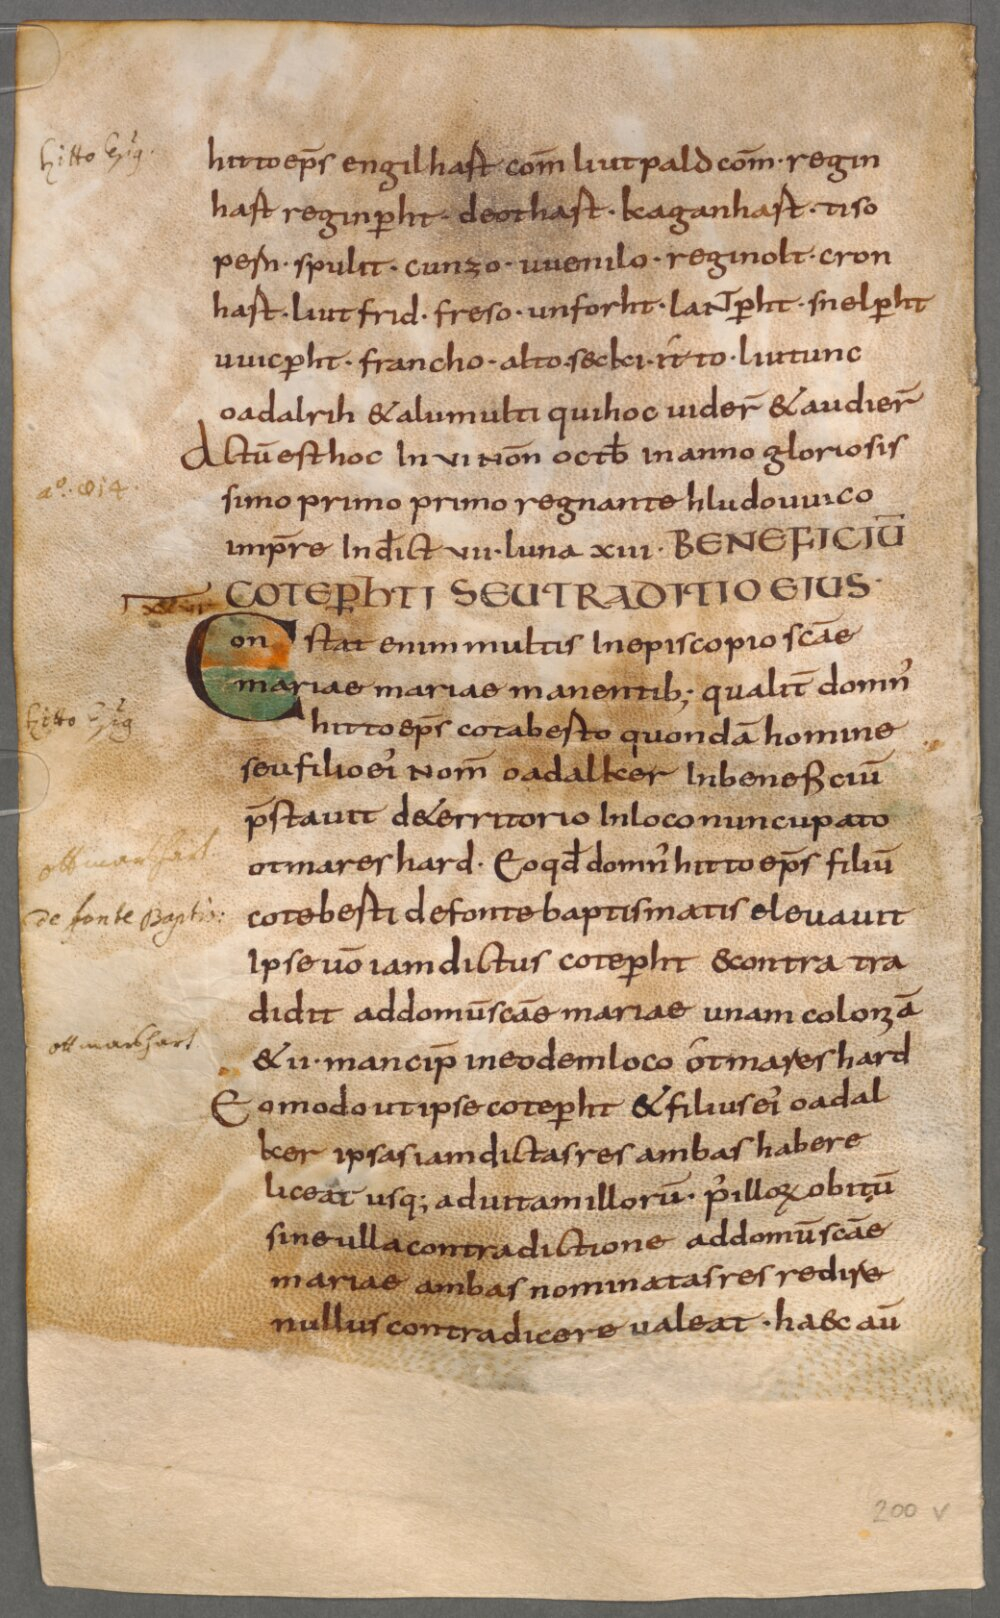 hitto ep̄s engilhast com̄ liutpald com̄ · regin
hast reginp̄ht · deothast · kaganhast · tiso
pesn · spulit · cunzo · uuenilo · reginolt · cron
hast · liutfrid · freso · unforht · laNTp̄ht · snelp̄ht
uuicp̄ht · francho · alto · secki · itto · liutunc
oadalrih & alii multi qui hoc uider̄ & audier̄
Actū est hoc In vi Non̄ octb̄ in anno gloriosis
simo primo primo regnante hludouuico
imp̄re Indict̄ vii · luna xiii · BENEFICIŪ
COTEP̄HTI SEU TRADITIO EIUS ·
Con stat enim multis In episcopio scāe
mariae mariae manentib; qualit̄ domn̄
hitto ep̄s cotabesto quondā homine
seu filio ei' Nom̄ oadalker In beneficiū
p̄stauit de territorio In loco nuncupato
otmareshard · Eo qd̄ domn̄ hitto ep̄s filiū
cotebesti de fonte baptismatis eleuauit
Ipse uō iam dictus cotep̄ht & contra tra
didit ad domū scāe mariae unam coloniā
& ii · mancip̄ in eodem loco otmareshard
Eo modo ut ipse cotep̄ht & filius ei' oadal
ker ipsas iam dictas res ambas habere
liceat usq; ad uitam illorū · p' illoꝝ obitū
sine ulla contradictione ad domū scāe
mariae ambas nominatas res redire
nullus contradicere ualeat · haec aū
hitto
aº. 814.
hitto
ottmarshart
de fonte Baptis:
ottmarshart
200 v